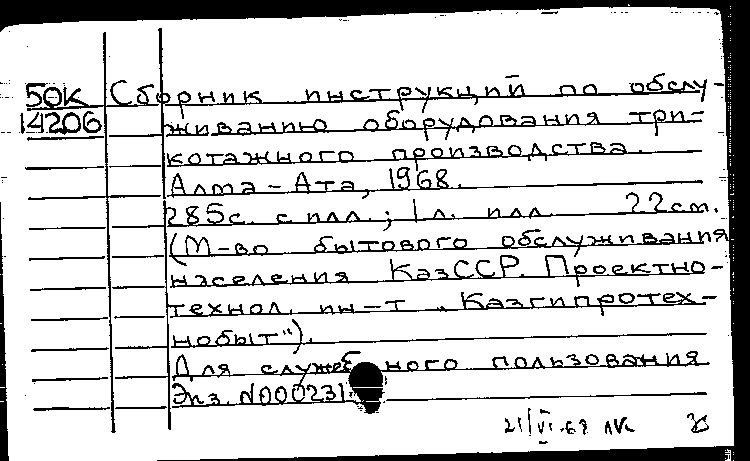 50К Сборник инструкций по обслу-
14206 живанию оборудования три-
котажного производства.
Алма-Ата, 1968.
285с. с илл.; 1л. илл 22см.
(М-во бытового обслуживания
населения КазССР. Проектно-
технол. ин-т "Казгипротех-
нобыт").
Для служебного пользования
Экз. N000231
21/VI-69